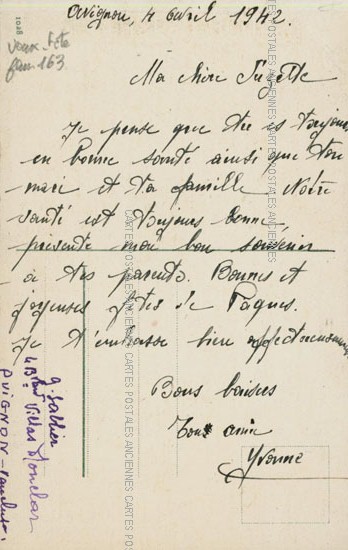 Avignon, 4 Avril 1942.
1028
Voeux-Fête
fam 163
Ma chère Suzette
Je pense que tu es toujours
en bonne santé ainsi que ton
mari et ta famille. Notre
santé est toujours bonne,
présente mon bon souvenir
à tes parents. Bonnes et
joyeuses fêtes de Pâques.
Je t'embrasse bien affectueusement
Bons baisers
Ton amie
Yvonne
4 Bis Villas Monclar
AVIGNON - Vaucluse.
CARTES POSTALES ANCIENNES CARTES POSTALES ANCIENNES CARTES POSTALES ANCIENNES